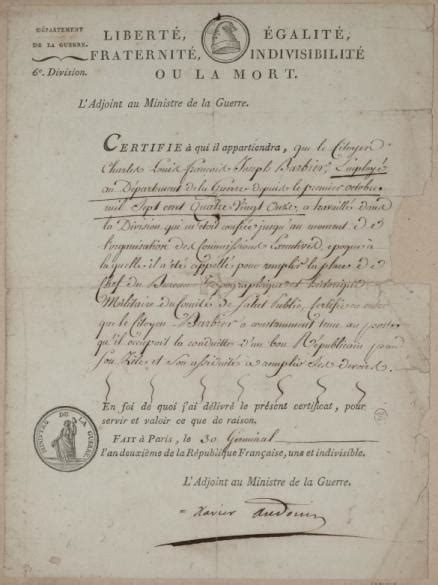 DÉPARTEMENT
DE LA GUERRE.
6e. Division.
LIBERTÉ, ÉGALITÉ,
FRATERNITÉ, INDIVISIBILITÉ
OU LA MORT.
L'Adjoint au Ministre de la Guerre.
CERTIFIE à qui il appartiendra, que le Citoyen
Charles Louis François Joseph Barbier, Employé
au Département de la Guerre depuis le premier octobre
mil Sept cent Quatre Vingt Onze, a travaillé dans
la Division qui m'etoit confiée jusqu'au moment de
l'organisation des Commissions Executives, epoque à
laquelle il a été appellé pour remplir la place de
Chef du Bureau Topographique et historique
Militaire du Comité de Salut Public, Certifie en outre
que le Citoyen Barbier a constamment tenu au poste
qu'il occupoit la conduitte d'un bon Republicain
son Zèle et son assiduité a remplir ses devoirs.
En foi de quoi j'ai délivré le présent certificat, pour
servir et valoir ce que de raison.
FAIT à Paris, le 30 Germinal
l'an deuxième de la République Française, une et indivisible.
L'Adjoint au Ministre de la Guerre.
Xavier Audouin
MINISTRE DE LA GUERRE